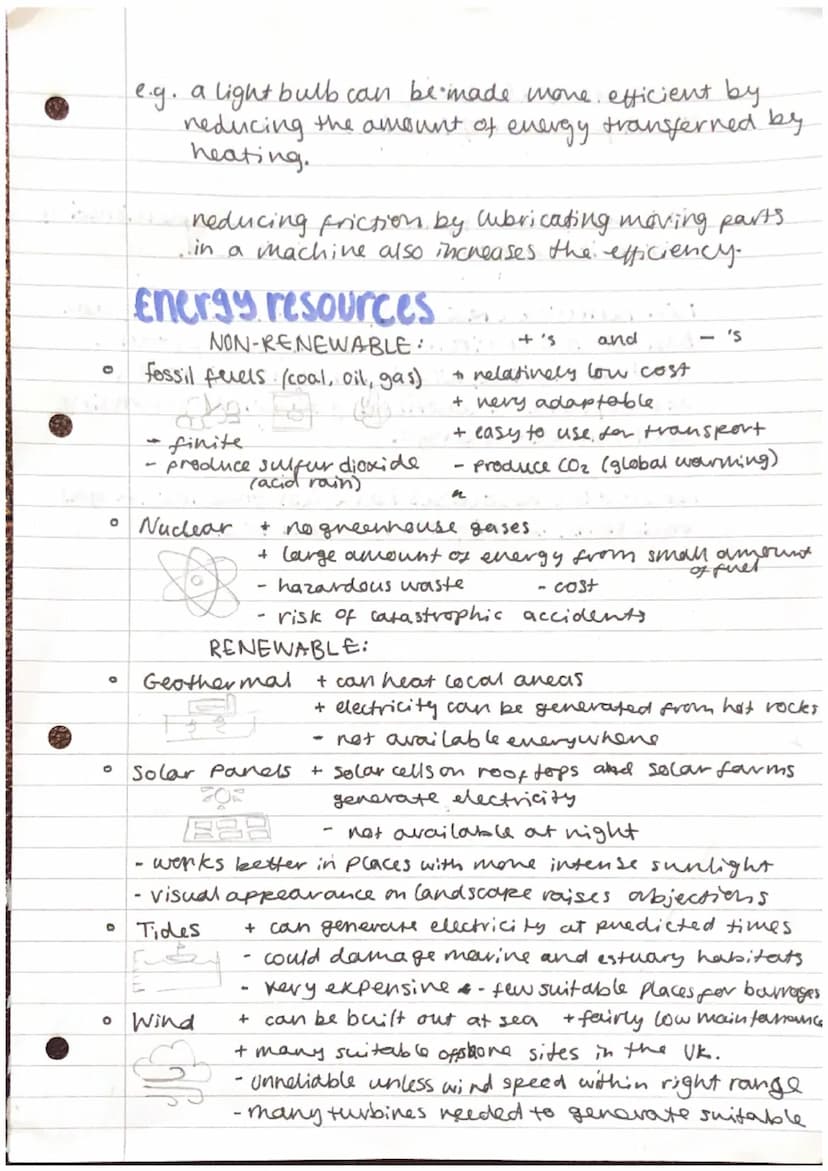 e.g. a light bulb can be made more efficient by
reducing the amount of energy transferred by
heating.
reducing friction by lubricating moving parts
in a machine also increases the efficiency.
Energy resources
NON-RENEWABLE: + 's and - 's
fossil fuels (coal, oil, gas) + relatively low cost
+ very adaptable
+ easy to use for transport
- finite
- produce sulfur dioxide - produce CO2 (global warming)
(acid rain)
Nuclear + no greenhouse gases
+ large amount of energy from small amount
of fuel
- hazardous waste - cost
- risk of catastrophic accidents
RENEWABLE:
Geothermal + can heat local areas
+ electricity can be generated from hot rocks
- not available everywhere
Solar Panels + solar cells on rooftops and solar farms
generate electricity
- not available at night
- works better in places with more intense sunlight
- visual appearance on landscape raises objections
Tides + can generate electricity at predicted times
- could damage marine and estuary habitats
- very expensive - few suitable places for barrages
Wind + can be built out at sea + fairly low maintenance
+ many suitable offshore sites in the UK.
- unreliable unless wind speed within right range
- many turbines needed to generate suitable